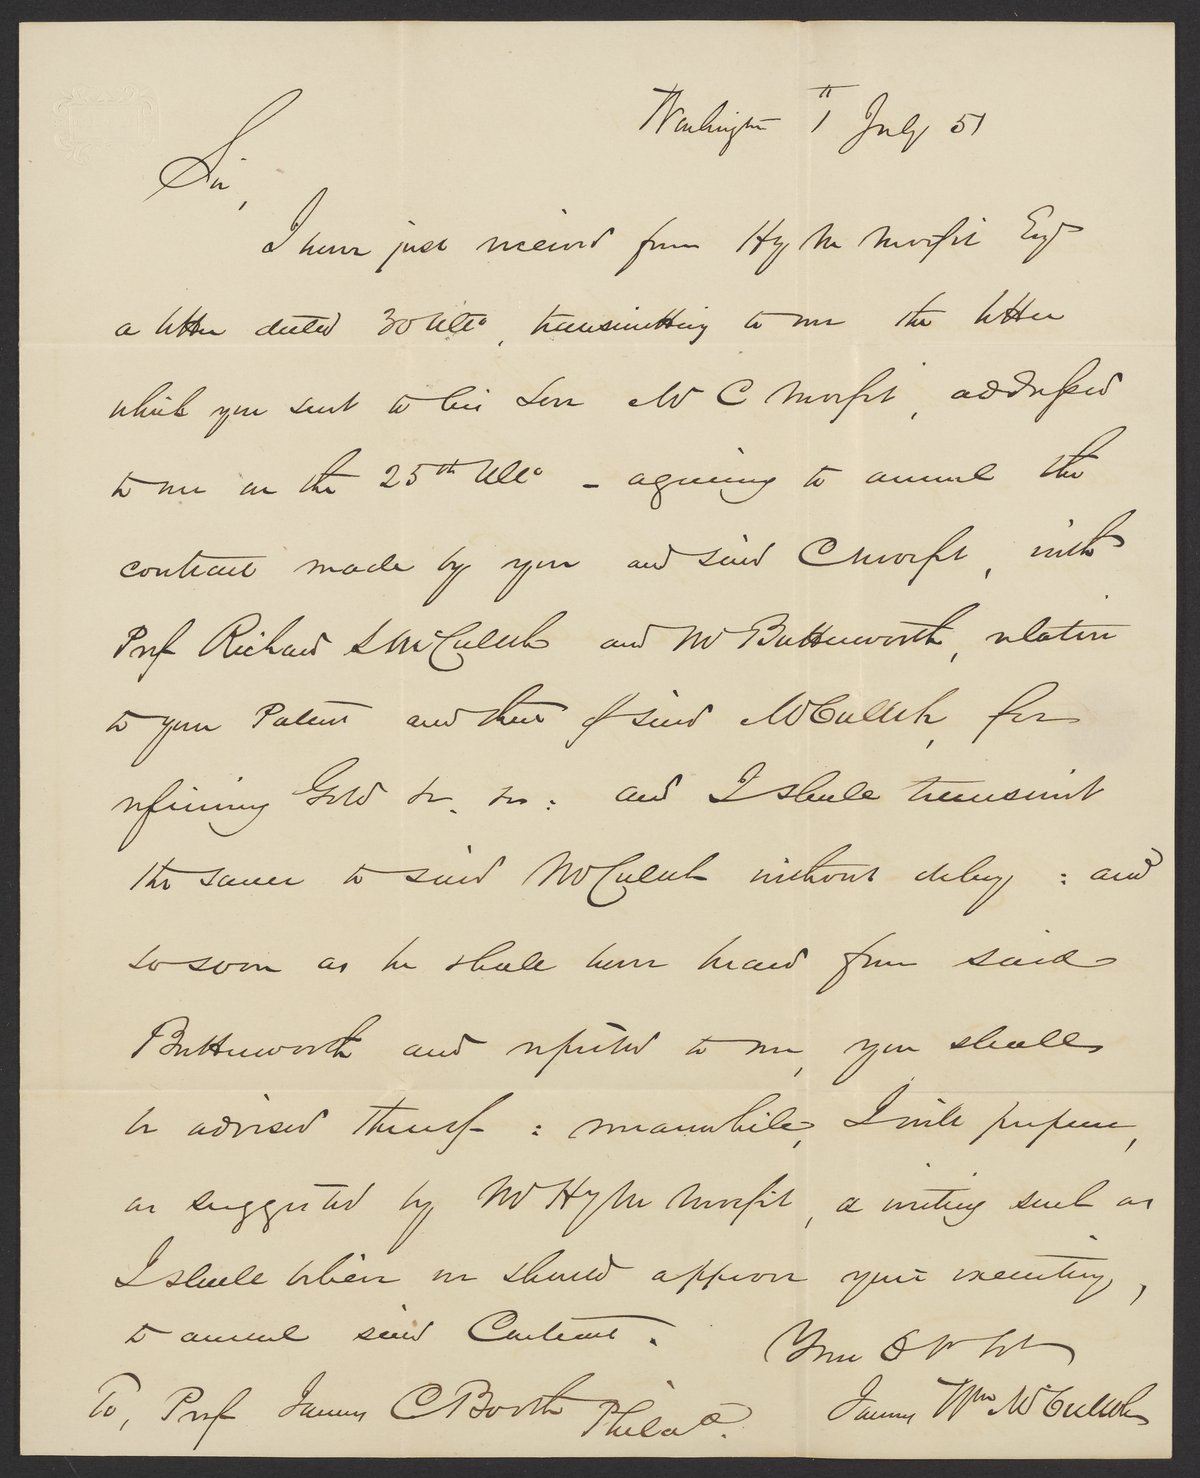 Washington 1th July 51
Sir,
I have just received from Hy M Morfit Esq
a letter dated 30 Ulto, transmitting to me the letter
which you sent to his Son Mr C Morfit, addressed
to me on the 25th Ulto - agreeing to annul the
contract made by you and said C Morfit, with
Prof Richard S McCulloh and Mr Butterworth, relative
to your Patent and that of said McCulloh, for
refining Gold &c. &c: and I shall transmit
the same to said McCulloh without delay : and
so soon as he shall have heard from said
Butterworth and reported to me, you shall
be advised thereof : meanwhile, I will prepare,
as suggested by Mr Hy M Morfit, a writing such as
I shall believe we should approve your executing,
to annul said Contract.
Your O
Jams Wm McCulloh
To, Prof James C Booth Philada.